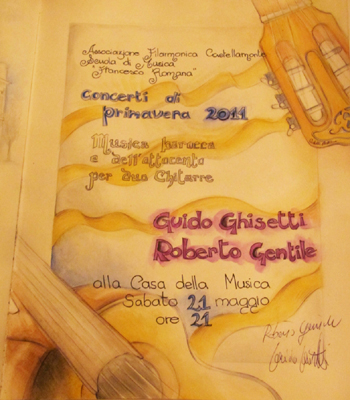 Associazione Filarmonica Castellamonte
Scuola di Musica
"Francesco Romana"
Concerti di
primavera 2011
Musica barocca
e dell'ottocento
per due Chitarre
Guido Ghisetti
Roberto Gentile
alla Casa della Musica
Sabato 21 maggio
ore 21